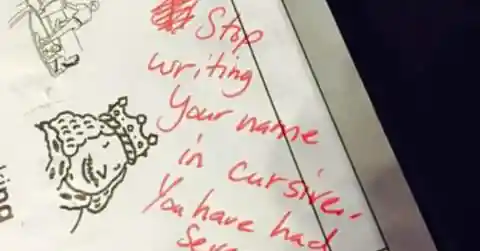 Stop
writing
Your name
in cursive.
You have had